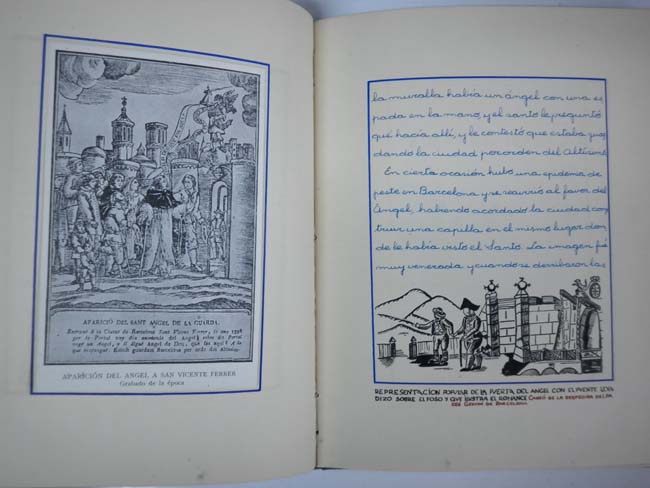 APARICIÓ DEL SANT ANGEL DE LA GUARDA.
Entrant á la Ciutat de Barcelona Sant Vicens Ferrer, lo any 1398
per lo Portal vuy dia anomenát del Angel; sobre dit Portal
vege un Angel, y li digué Angel de Deu, que feu aquí? A lo
que respongué. Estich guardant Barcelona per orde del Altissim.
APARICIÓN DEL ANGEL A SAN VICENTE FERRER
Grabado de la época
la muralla había un ángel con una es
pada en la mano, y el santo le preguntó
qué hacía allí, y le contestó que estaba guar
dando la ciudad por orden del Altísimo.
En cierta ocasión hubo una epidemia de
peste en Barcelona y se recurrió al favor del
Ángel, habiendo acordado la ciudad cons
truir una capilla en el mismo lugar don
de le había visto el Santo. La imagen fué
muy venerada y cuando se derribaron las
REPRESENTACIÓN POPULAR DE LA PUERTA DEL ANGEL CON EL PUENTE LEVA
DIZO SOBRE EL FOSO Y QUE ILUSTRA EL ROMANCE CANSÓ DE LA DESPEDIDA
DE BARCELONA